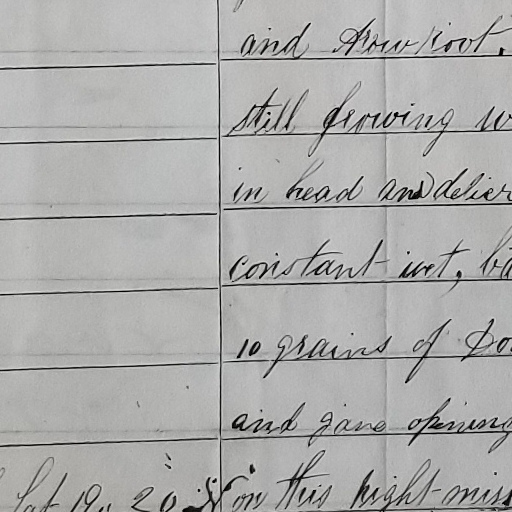 and Arrowroot.
still growing
in head and
constant wet,
10 grains of
and gave opening
Lat 19" 20 on this night